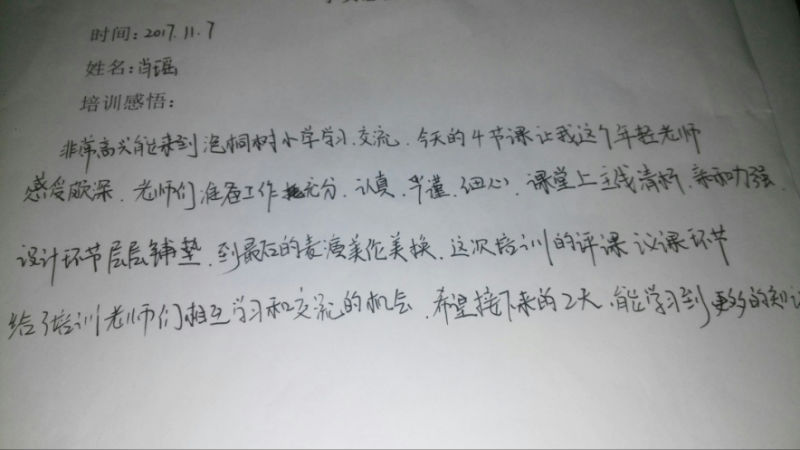 时间:2017.11.7
姓名:肖瑶
培训感悟:
非常高兴能来到泡桐树小学学习、交流。今天的4节课让我这个年轻老师
感受颇深。老师们准备工作充分、认真、严谨、细心,课堂上主线清晰,亲和力强,
设计环节层层铺垫,到最后的表演美伦美换。这次培训的评课议课环节
给了培训老师们相互学习和交流的机会,希望接下来的2天,能学习到更多的知识